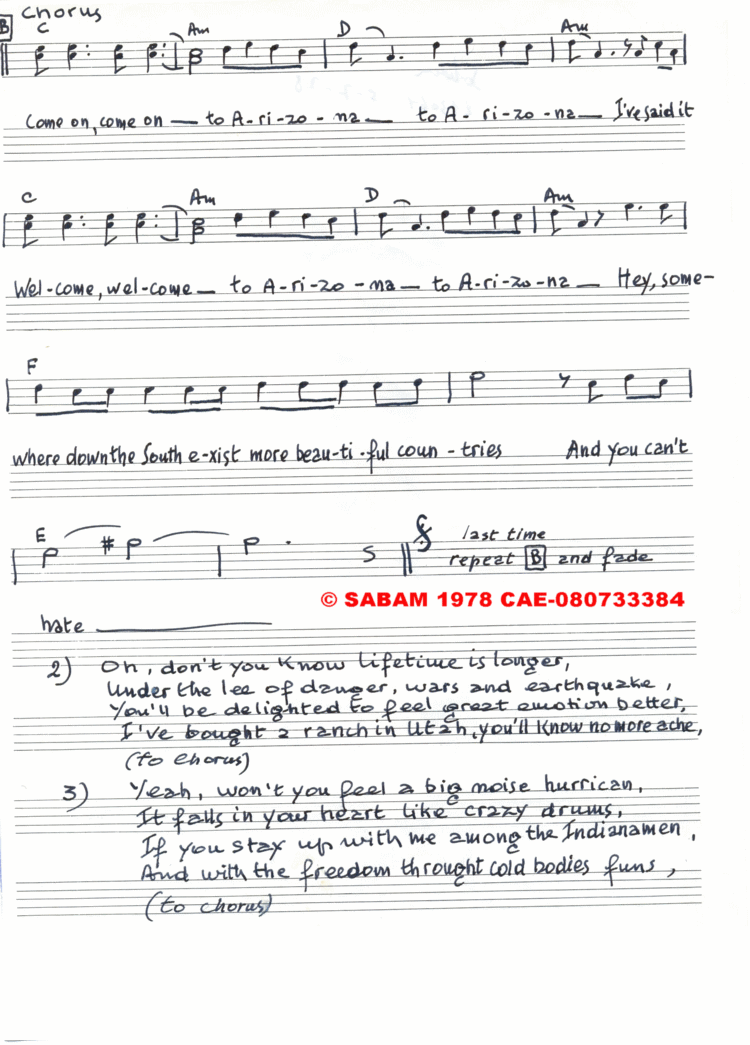 Chorus
B C Am D Am
Come on, come on — to A-ri-zo-na — to A-ri-zo-na — I've said it
C Am D Am
Wel-come, wel-come — to A-ri-zo-na — to A-ri-zo-na — Hey, some-
F
where down the South e-xist more beau-ti-ful coun-tries And you can't
E last time
repeat B and fade
© SABAM 1978 CAE-080733384
hate
2) Oh, don't you know lifetime is longer,
Under the lee of danger, wars and earthquake,
You'll be delighted to feel great emotion better,
I've bought a ranch in Utah, you'll know no more ache,
(to chorus)
3) Yeah, won't you feel a big noise hurrican,
It falls in your heart like crazy drums,
If you stay up with me among the Indianamen,
And with the freedom throught cold bodies funs,
(to chorus)